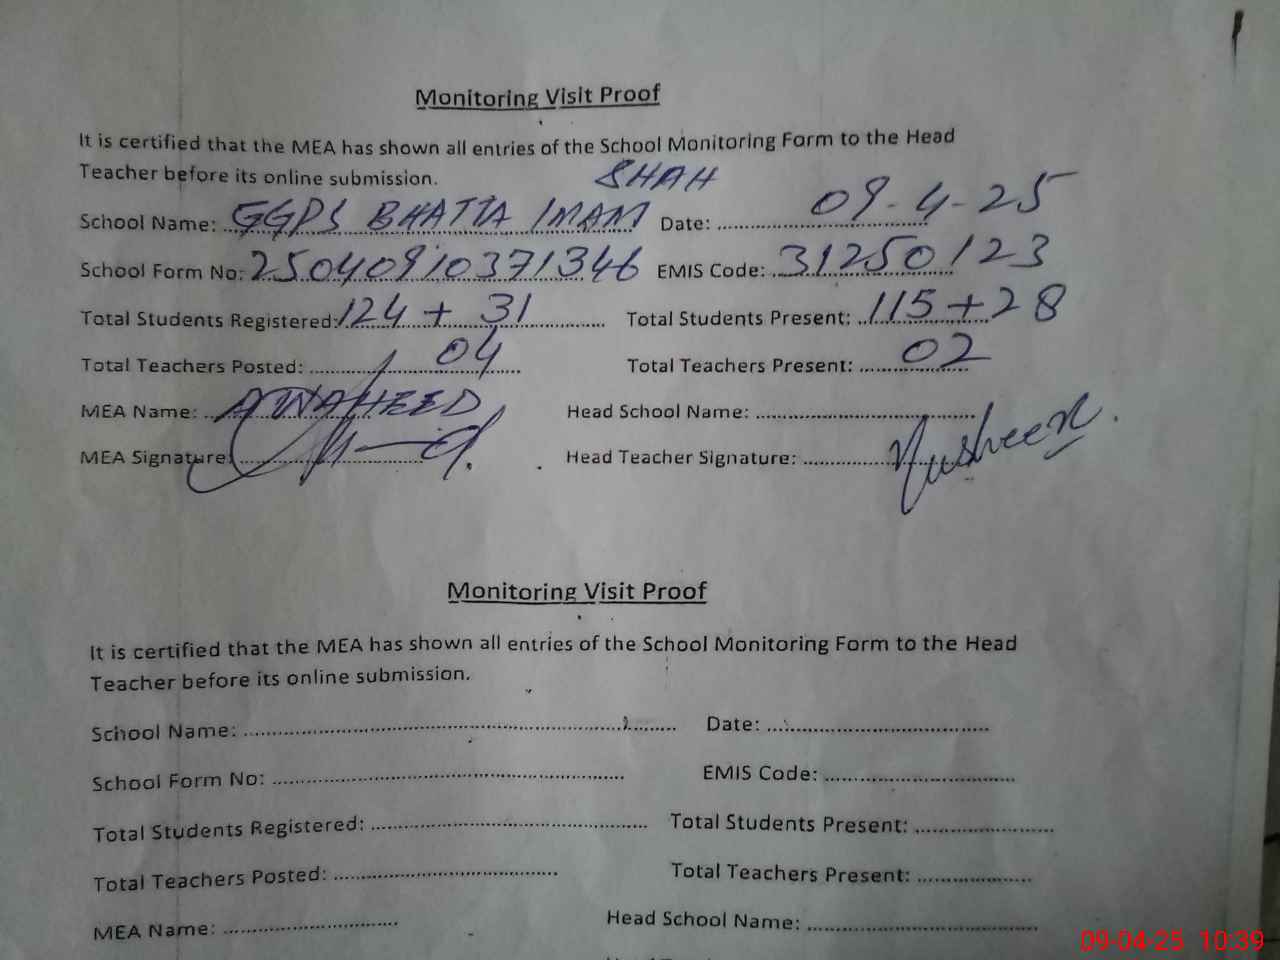 Monitoring Visit Proof
It is certified that the MEA has shown all entries of the School Monitoring Form to the Head
Teacher before its online submission.
SHAH
School Name: GGPS BHATTA IMAM Date: 09-4-25
School Form No: 25040910371346 EMIS Code: 31250123
Total Students Registered: 124 + 31 Total Students Present: 115 + 28
Total Teachers Posted: 04 Total Teachers Present: 02
MEA Name: A WAHEED Head School Name:
MEA Signature: Head Teacher Signature: Nusheen
Monitoring Visit Proof
It is certified that the MEA has shown all entries of the School Monitoring Form to the Head
Teacher before its online submission.
School Name: Date:
School Form No: EMIS Code:
Total Students Registered: Total Students Present:
Total Teachers Posted: Total Teachers Present:
MEA Name: Head School Name:
09-04-25 10:39